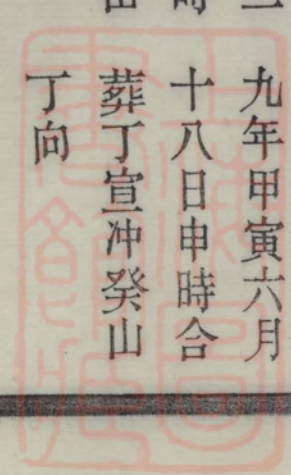 九年甲寅六月
十八日申時合
葬丁宣冲癸山
丁向